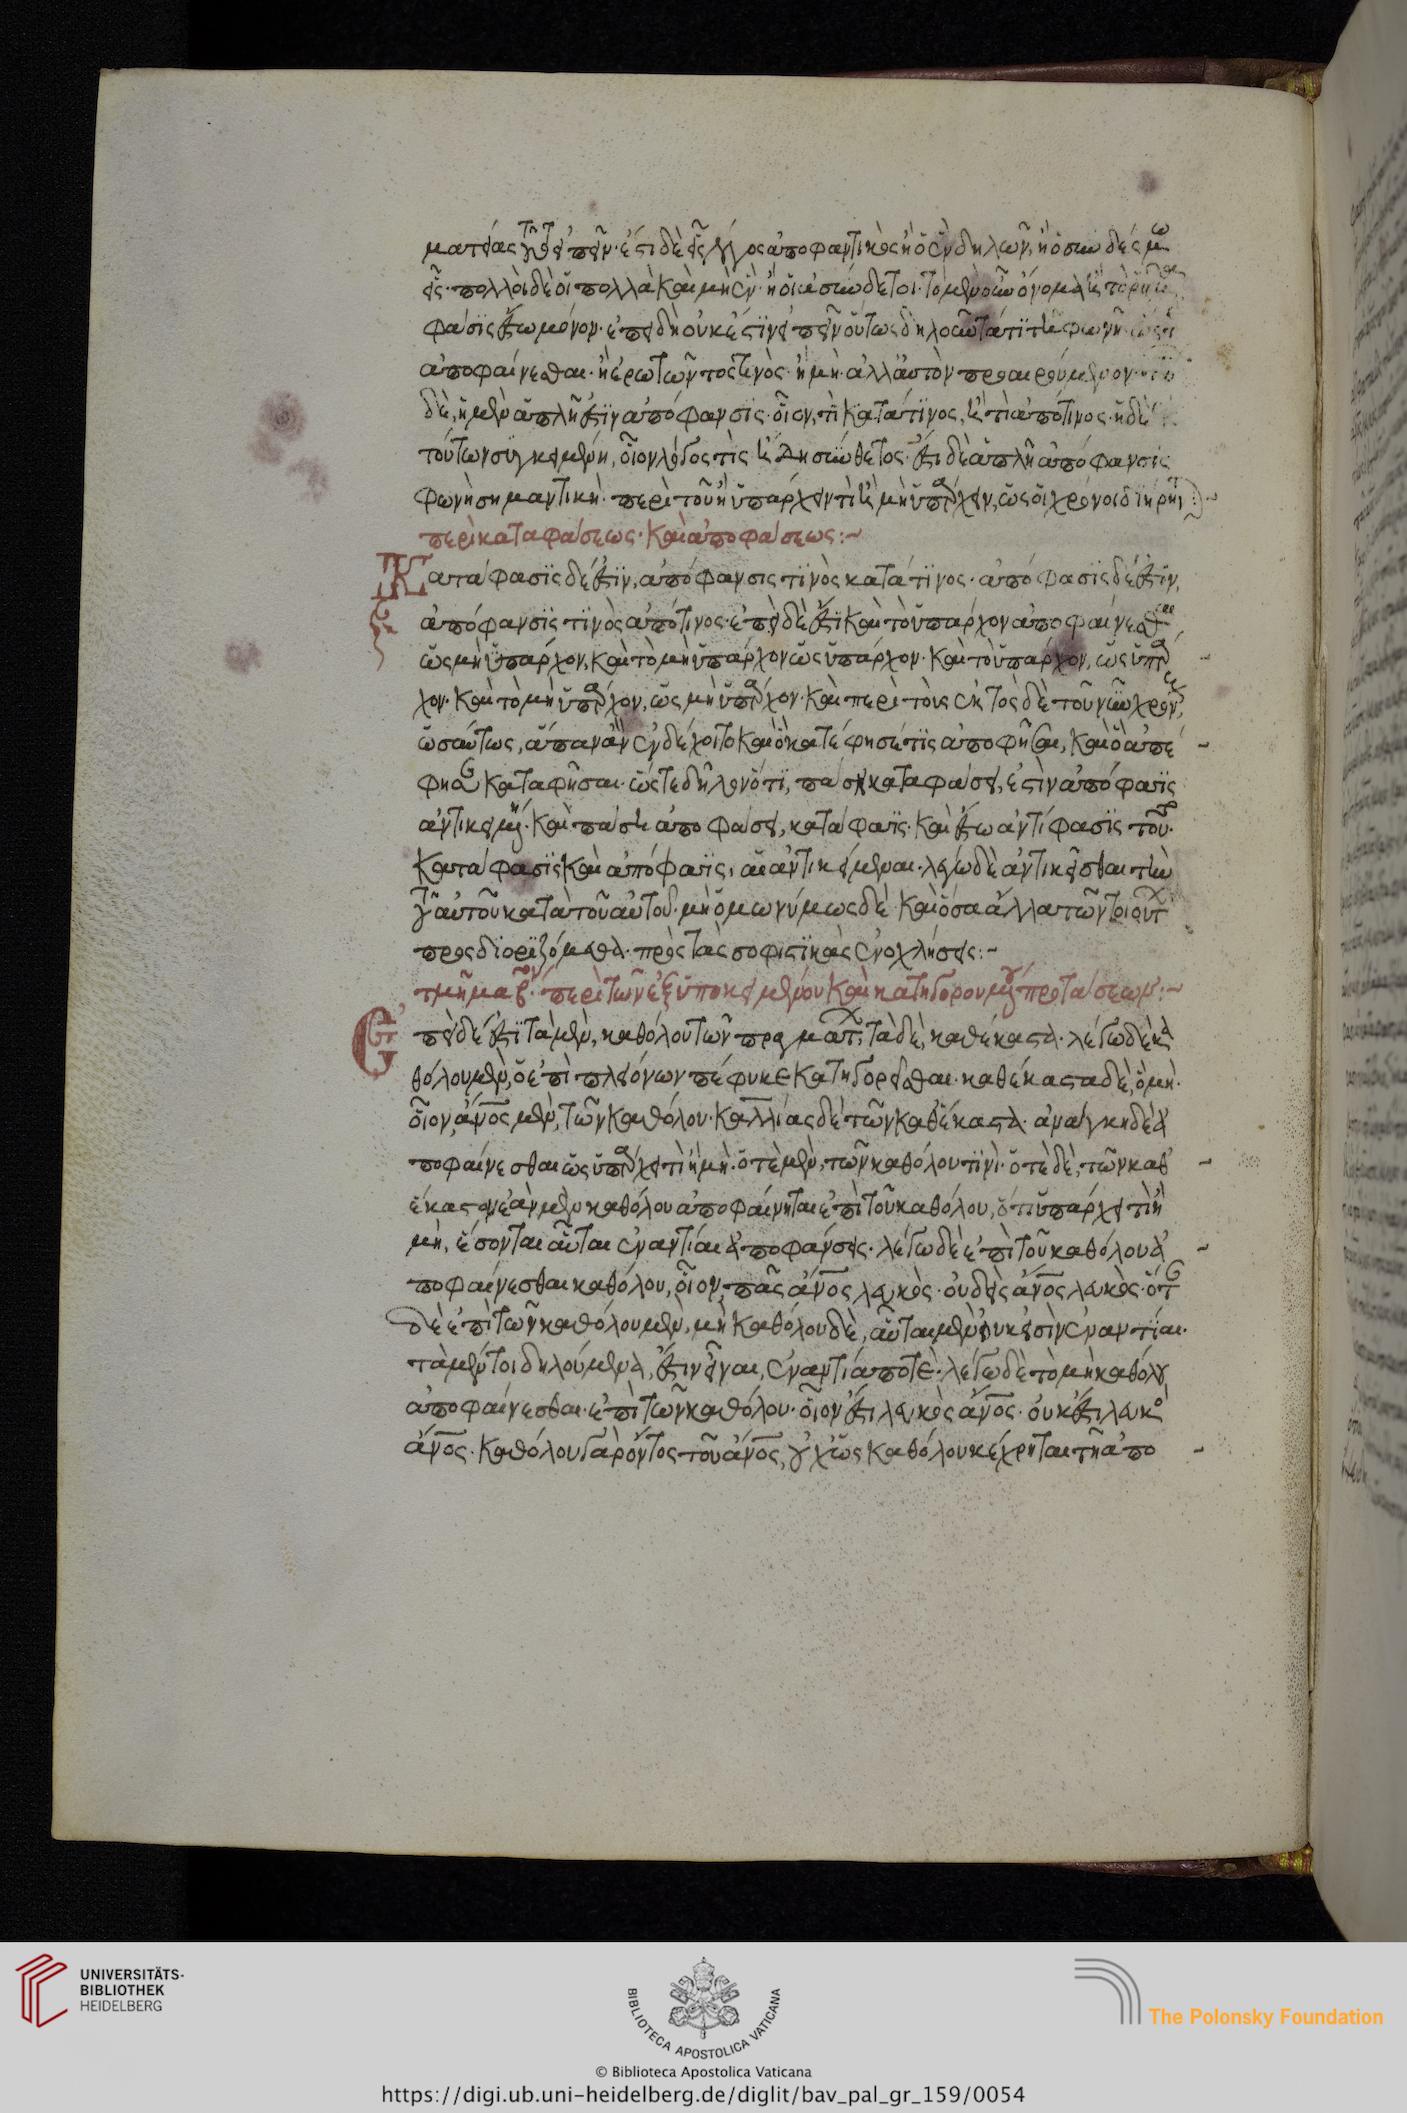 ματείας τοῦτο εἰπεῖν· ἔστι δὲ εἷς λόγος ἀποφαντικὸς ἢ ὁ ἓν δηλῶν, ἢ ὁ συνδέσμω
εἷς· πολλοὶ δὲ οἱ πολλὰ καὶ μὴ ἓν· ἢ οἱ ἀσύνδετοι· τὸ μὲν οὖν ὄνομα καὶ τὸ ῥῆμα
φάσις ἔστω μόνον· ἐπειδὴ οὐκ ἔστιν εἰπεῖν οὕτως δηλοῦντά τι τῇ φωνῇ ὥστε
ἀποφαίνεσθαι· ἢ ἐρωτῶντος τινὸς· ἢ μὴ· ἀλλ' αὐτὸν προαιρούμενον·
δὲ, ἡ μὲν ἁπλῆ ἐστὶν ἀπόφανσις· οἷον, τὶ κατά τινος, καὶ τὶ ἀπό τινος· ἡ δὲ
τούτων συγκειμένη, οἷον λόγος τὶς καὶ δὴ σύνθετος· ἔστι δὲ ἁπλῆ ἀπόφανσις
φωνὴ σημαντικὴ· περὶ τοῦ ἢ ὑπάρχειν τὶ καὶ μὴ ὑπάρχειν, ὡς οἱ χρόνοι διήρηνται:~
περὶ καταφάσεως· καὶ ἀποφάσεως:~
Κατάφασις δέ ἐστιν, ἀπόφανσις τινὸς κατά τινος· ἀπόφασις δέ ἐστιν,
ἀπόφανσις τινὸς ἀπό τινος· ἐπεὶ δὲ ἔστι καὶ τὸ ὑπάρχον ἀποφαίνεσθαι
ὡς μὴ ὑπάρχον, καὶ τὸ μὴ ὑπάρχον ὡς ὑπάρχον· καὶ τὸ ὑπάρχον, ὡς ὑπάρ
χον· καὶ τὸ μὴ ὑπάρχον, ὡς μὴ ὑπάρχον· καὶ περὶ τοὺς ἐκτὸς δὲ τοῦ νῦν χρόνους,
ὡσαύτως, ἅπαν ἂν ἐνδέχοιτο καὶ ὃ κατέφησέ τις ἀποφῆσαι, καὶ ὃ ἀπέ
φησε καταφῆσαι· ὥστε δῆλον ὅτι, πάση καταφάσει, ἐστὶν ἀπόφασις
ἀντικειμένη· καὶ πάση ἀποφάσει, κατάφασις· καὶ ἔστω ἀντίφασις τοῦτο·
κατάφασις καὶ ἀπόφασις, αἱ ἀντικείμεναι· λέγω δὲ ἀντικεῖσθαι τὴν
τοῦ αὐτοῦ κατὰ τοῦ αὐτοῦ· μὴ ὁμωνύμως δὲ· καὶ ὅσα ἄλλα τῶν τοιούτων
προσδιοριζόμεθα· πρὸς τὰς σοφιστικὰς ἐνοχλήσεις:~
τμῆμα βον· περὶ τῶν ἐξ ὑποκειμένου καὶ κατηγορουμένου προτάσεων:~
Ἐπεὶ δέ ἐστι τὰ μὲν, καθόλου τῶν πραγμάτων, τὰ δὲ, καθέκαστα· λέγω δὲ κα
θόλου μὲν, ὃ ἐπὶ πλειόνων πέφυκε κατηγορεῖσθαι· καθέκαστα δὲ, ὃ μὴ·
οἷον, ἄνος μὲν, τῶν καθόλου· καλλίας δὲ τῶν καθέκαστα· ἀνάγκη δὲ ἀ
ποφαίνεσθαι ὡς ὑπάρχει τὶ ἢ μὴ· ὁτὲ μὲν, τῶν καθόλου τινὶ· ὁτὲ δὲ, τῶν καθ'
ἕκαστον ἐὰν μὲν καθόλου ἀποφαίνηται ἐπὶ τοῦ καθόλου, ὅτι ὑπάρχει τὶ ἢ
μὴ, ἔσονται αὗται ἐναντίαι ἀποφάνσεις· λέγω δὲ ἐπὶ τοῦ καθόλου ἀ
ποφαίνεσθαι καθόλου, οἷον, πᾶς ἄνος λευκὸς· οὐδεὶς ἄνος λευκὸς· ὅτε
δὲ ἐπὶ τῶν καθόλου μὲν, μὴ καθόλου δὲ, αὗται μὲν οὐκ εἰσὶν ἐναντίαι·
τὰ μέντοι δηλούμενα, ἔστιν εἶναι, ἐναντία ποτὲ· λέγω δὲ τὸ μὴ καθόλου
ἀποφαίνεσθαι· ἐπὶ τῶν καθόλου· οἷον ἔστι λευκὸς ἄνος· οὐκ ἔστι λευκὸς
ἄνος· καθόλου γὰρ ὄντος τοῦ ἄνος, οὐχ ὡς καθόλου κέχρηται τῇ ἀπο
UNIVERSITÄTS-
BIBLIOTHEK
HEIDELBERG
BIBLIOTECA APOSTOLICA VATICANA
The Polonsky Foundation
© Biblioteca Apostolica Vaticana
https://digi.ub.uni-heidelberg.de/diglit/bav_pal_gr_159/0054